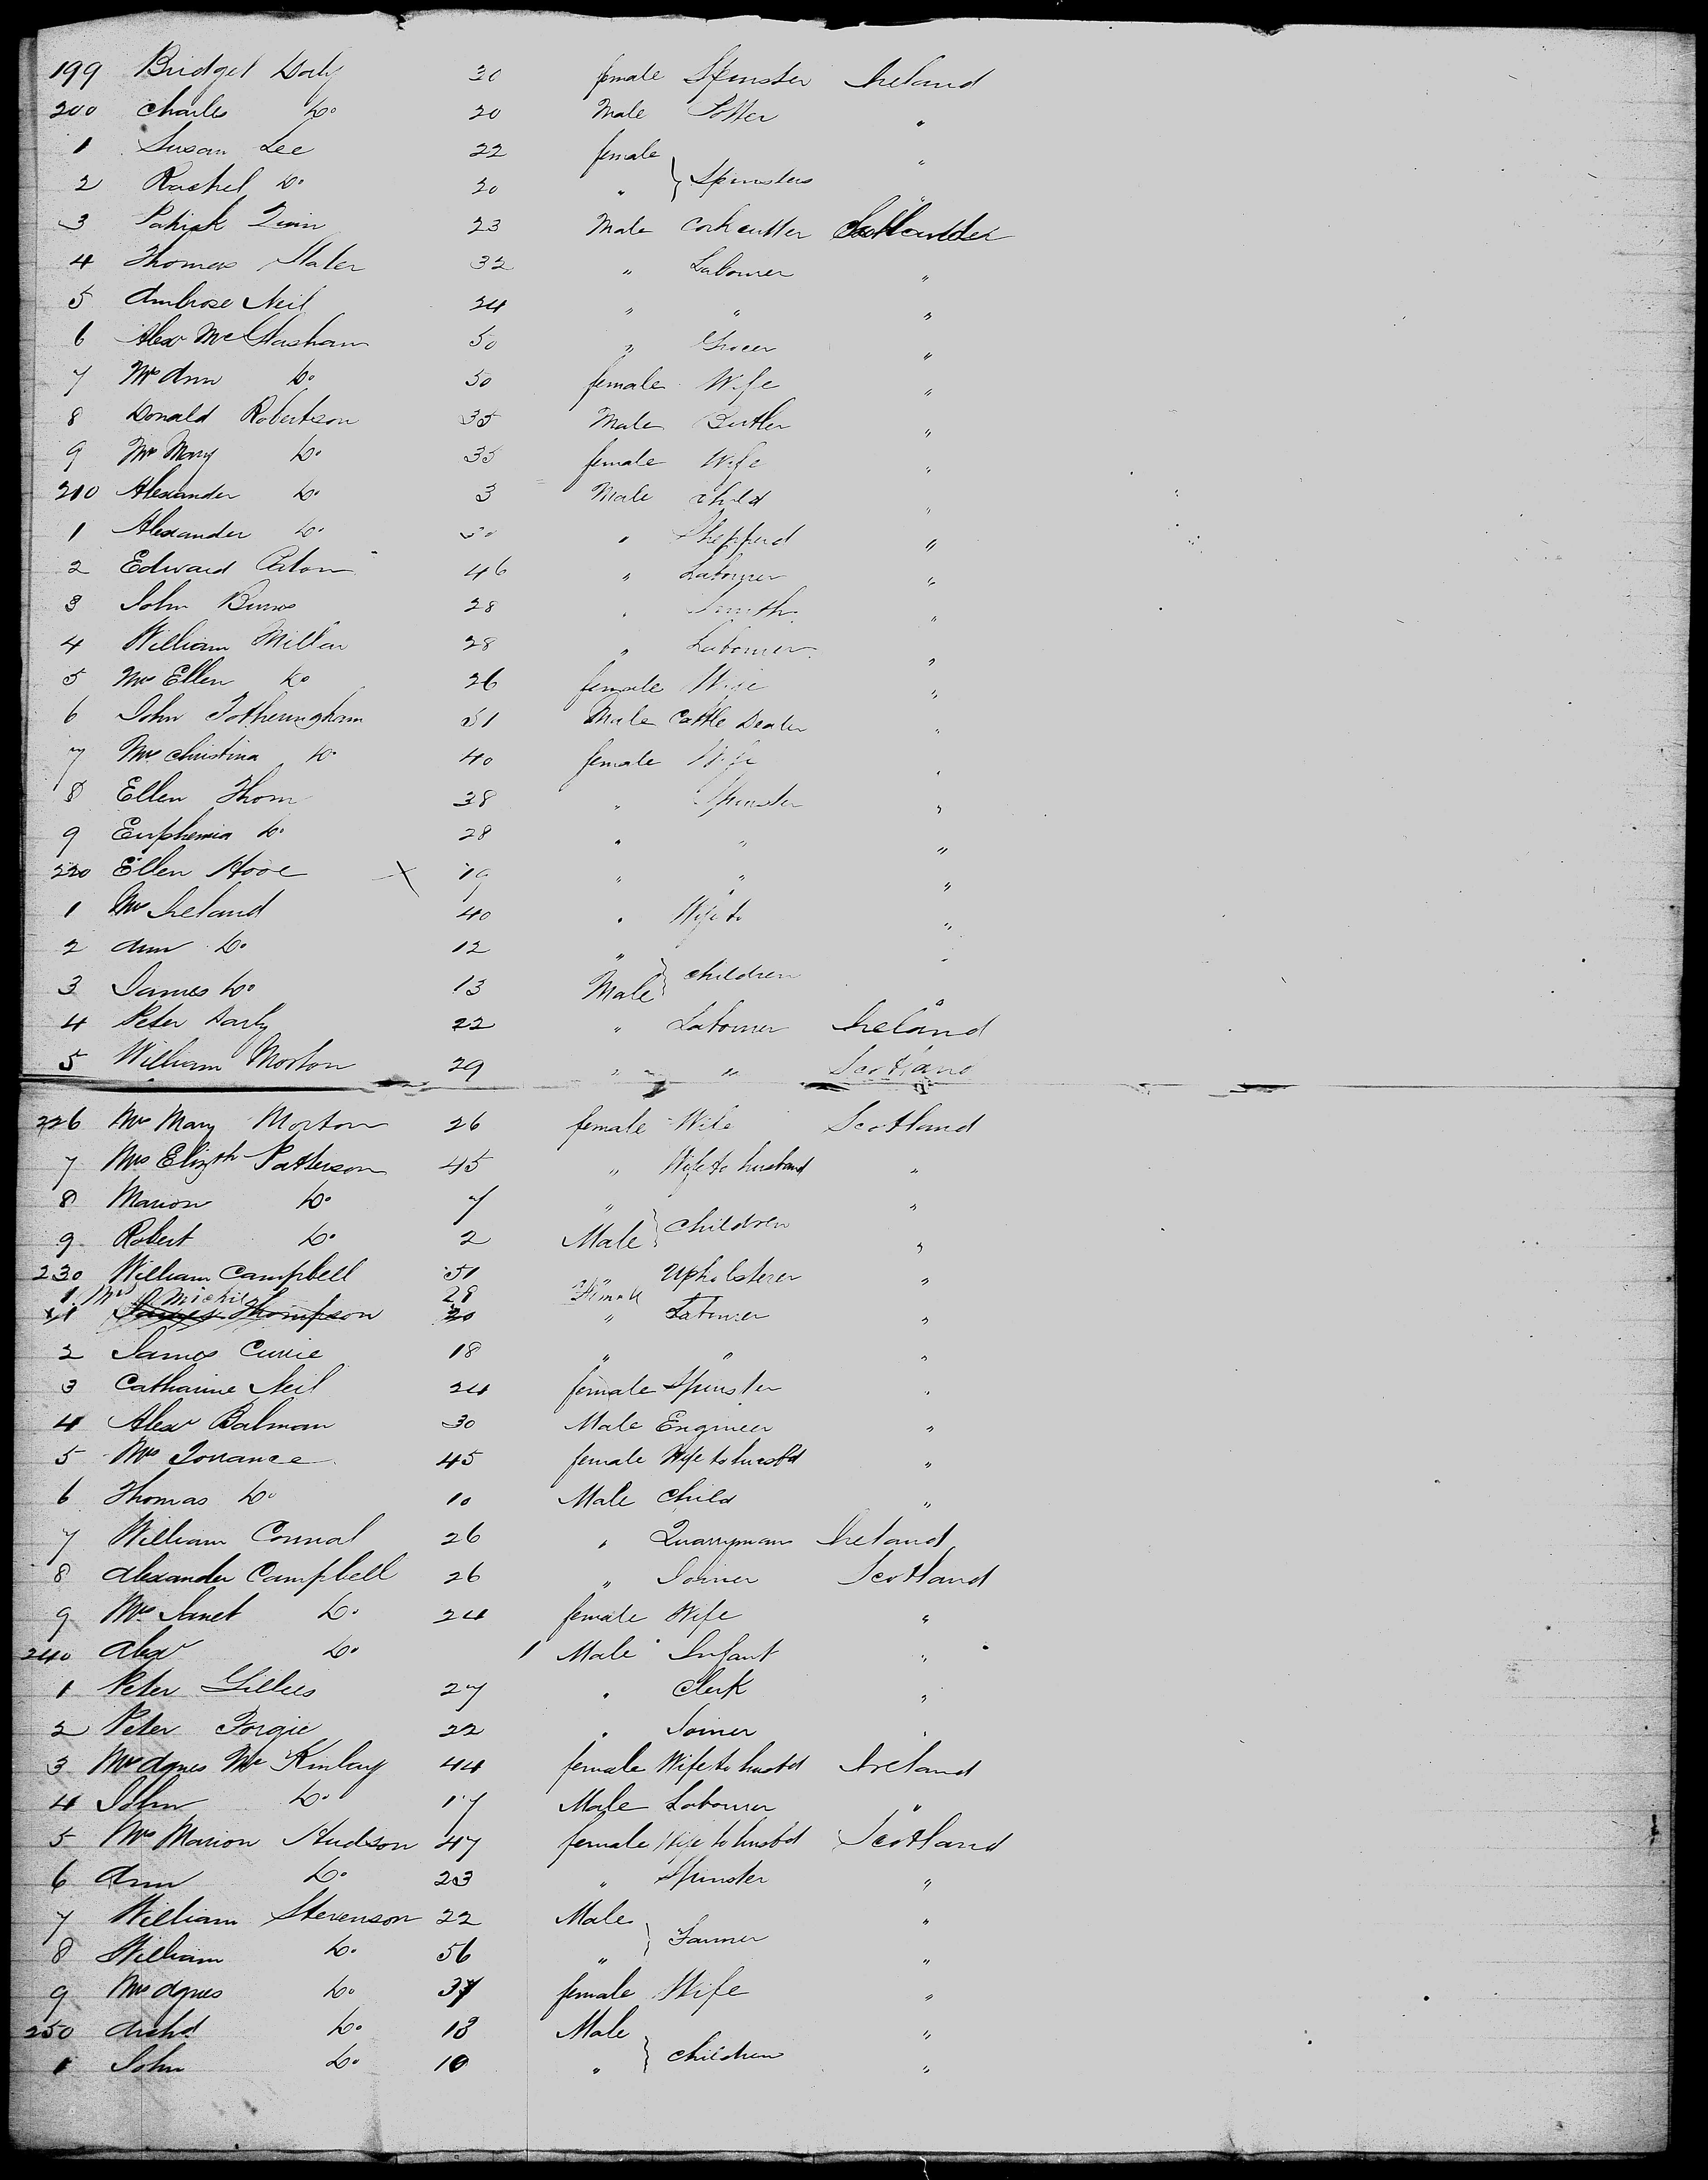 199 Bridget Daly 30 female Spinster Ireland
200 Charles Do 20 Male Potter "
1 Susan Lee 22 female "
2 Rachel Do 20 " } Spinsters "
3 Patrick Quin 23 Male Cork cutter
4 Thomas Slater 32 " Labourer "
5 Ambrose Neil 24 " " "
6 Alexr McGlashan 50 " Grocer "
7 Mrs Ann Do 50 female Wife "
8 Donald Robertson 35 Male Butler "
9 Mrs Mary Do 35 female Wife "
210 Alexander Do 3 Male Child "
1 Alexander Do 30 " Shepperd "
2 Edward 46 " Labourer "
3 John Burns 28 " Smith "
4 William Millar 28 " Labourer "
5 Mrs Ellen Do 26 female Wife "
6 John Fotheringham 51 Male Cattle Dealer "
7 Mrs Christina Do 40 female Wife "
8 Ellen Thom 38 " Spinster "
9 Euphemia Do 28 " " "
220 Ellen X 19 " " "
1 Mrs Ireland 40 " Wife to "
2 Ann Do 12 " "
3 James Do 13 Male } children "
4 Peter Darly 22 " Labourer Ireland
5 William Morton 29 " " Scotland
226 Mrs Mary Morton 26 female Wife Scotland
7 Mrs Elizth Patterson 45 " Wife to husband "
8 Marion Do 7 " "
9 Robert Do 2 Male } Children "
230 William Campbell 51 " Upholsterer "
1 Mrs Michie 28 Female
31 James Thompson 20 " Labourer "
2 James Currie 18 " " "
3 Catharine Neil 24 female Spinster "
4 Alexr Balman 30 Male Engineer "
5 Mrs Torrance 45 female Wife to husbd "
6 Thomas Do 10 Male Child "
7 William Connal 26 " Quarryman Ireland
8 Alexander Campbell 26 " Joiner Scotland
9 Mrs Janet Do 24 female Wife "
240 Alexr Do 1 Male Infant "
1 Peter Gillies 27 " Clerk "
2 Peter Forgie 22 " Joiner "
3 Mrs Agnes McKinlay 44 female Wife to husbd Ireland
4 John Do 17 Male Labourer "
5 Mrs Marion Hudson 47 female Wife to husbd Scotland
6 Ann Do 23 " Spinster "
7 William Stevenson 22 Male "
8 William Do 56 " } Farmer "
9 Mrs Agnes Do 37 female Wife "
250 Archd Do 13 Male "
1 John Do 10 " } Children "